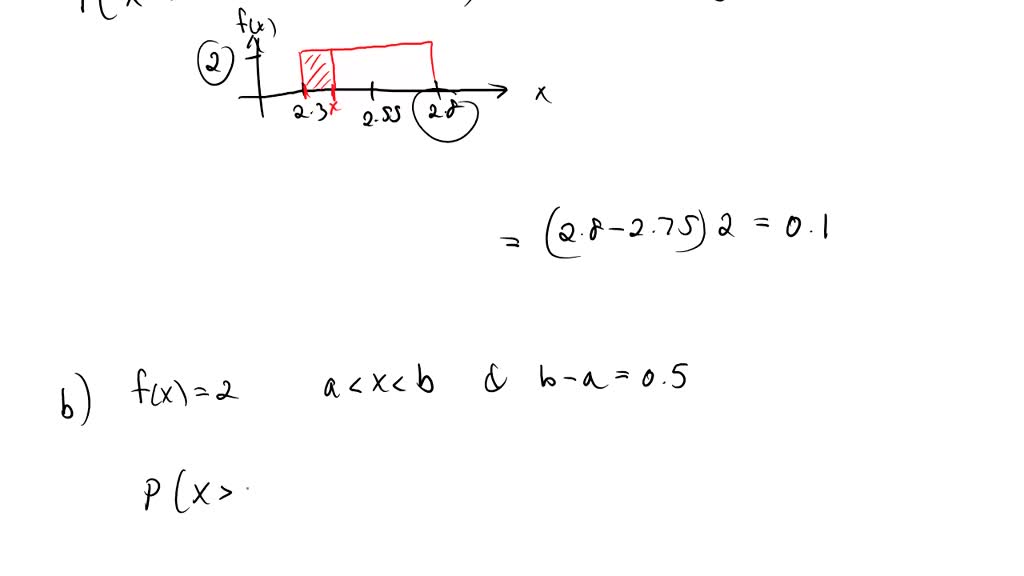 f(x)
2
2.3 x 2.55 2.8 x
= (2.8-2.75) 2 = 0.1
b) f(x) = 2 a < x < b & b-a = 0.5
P(X >